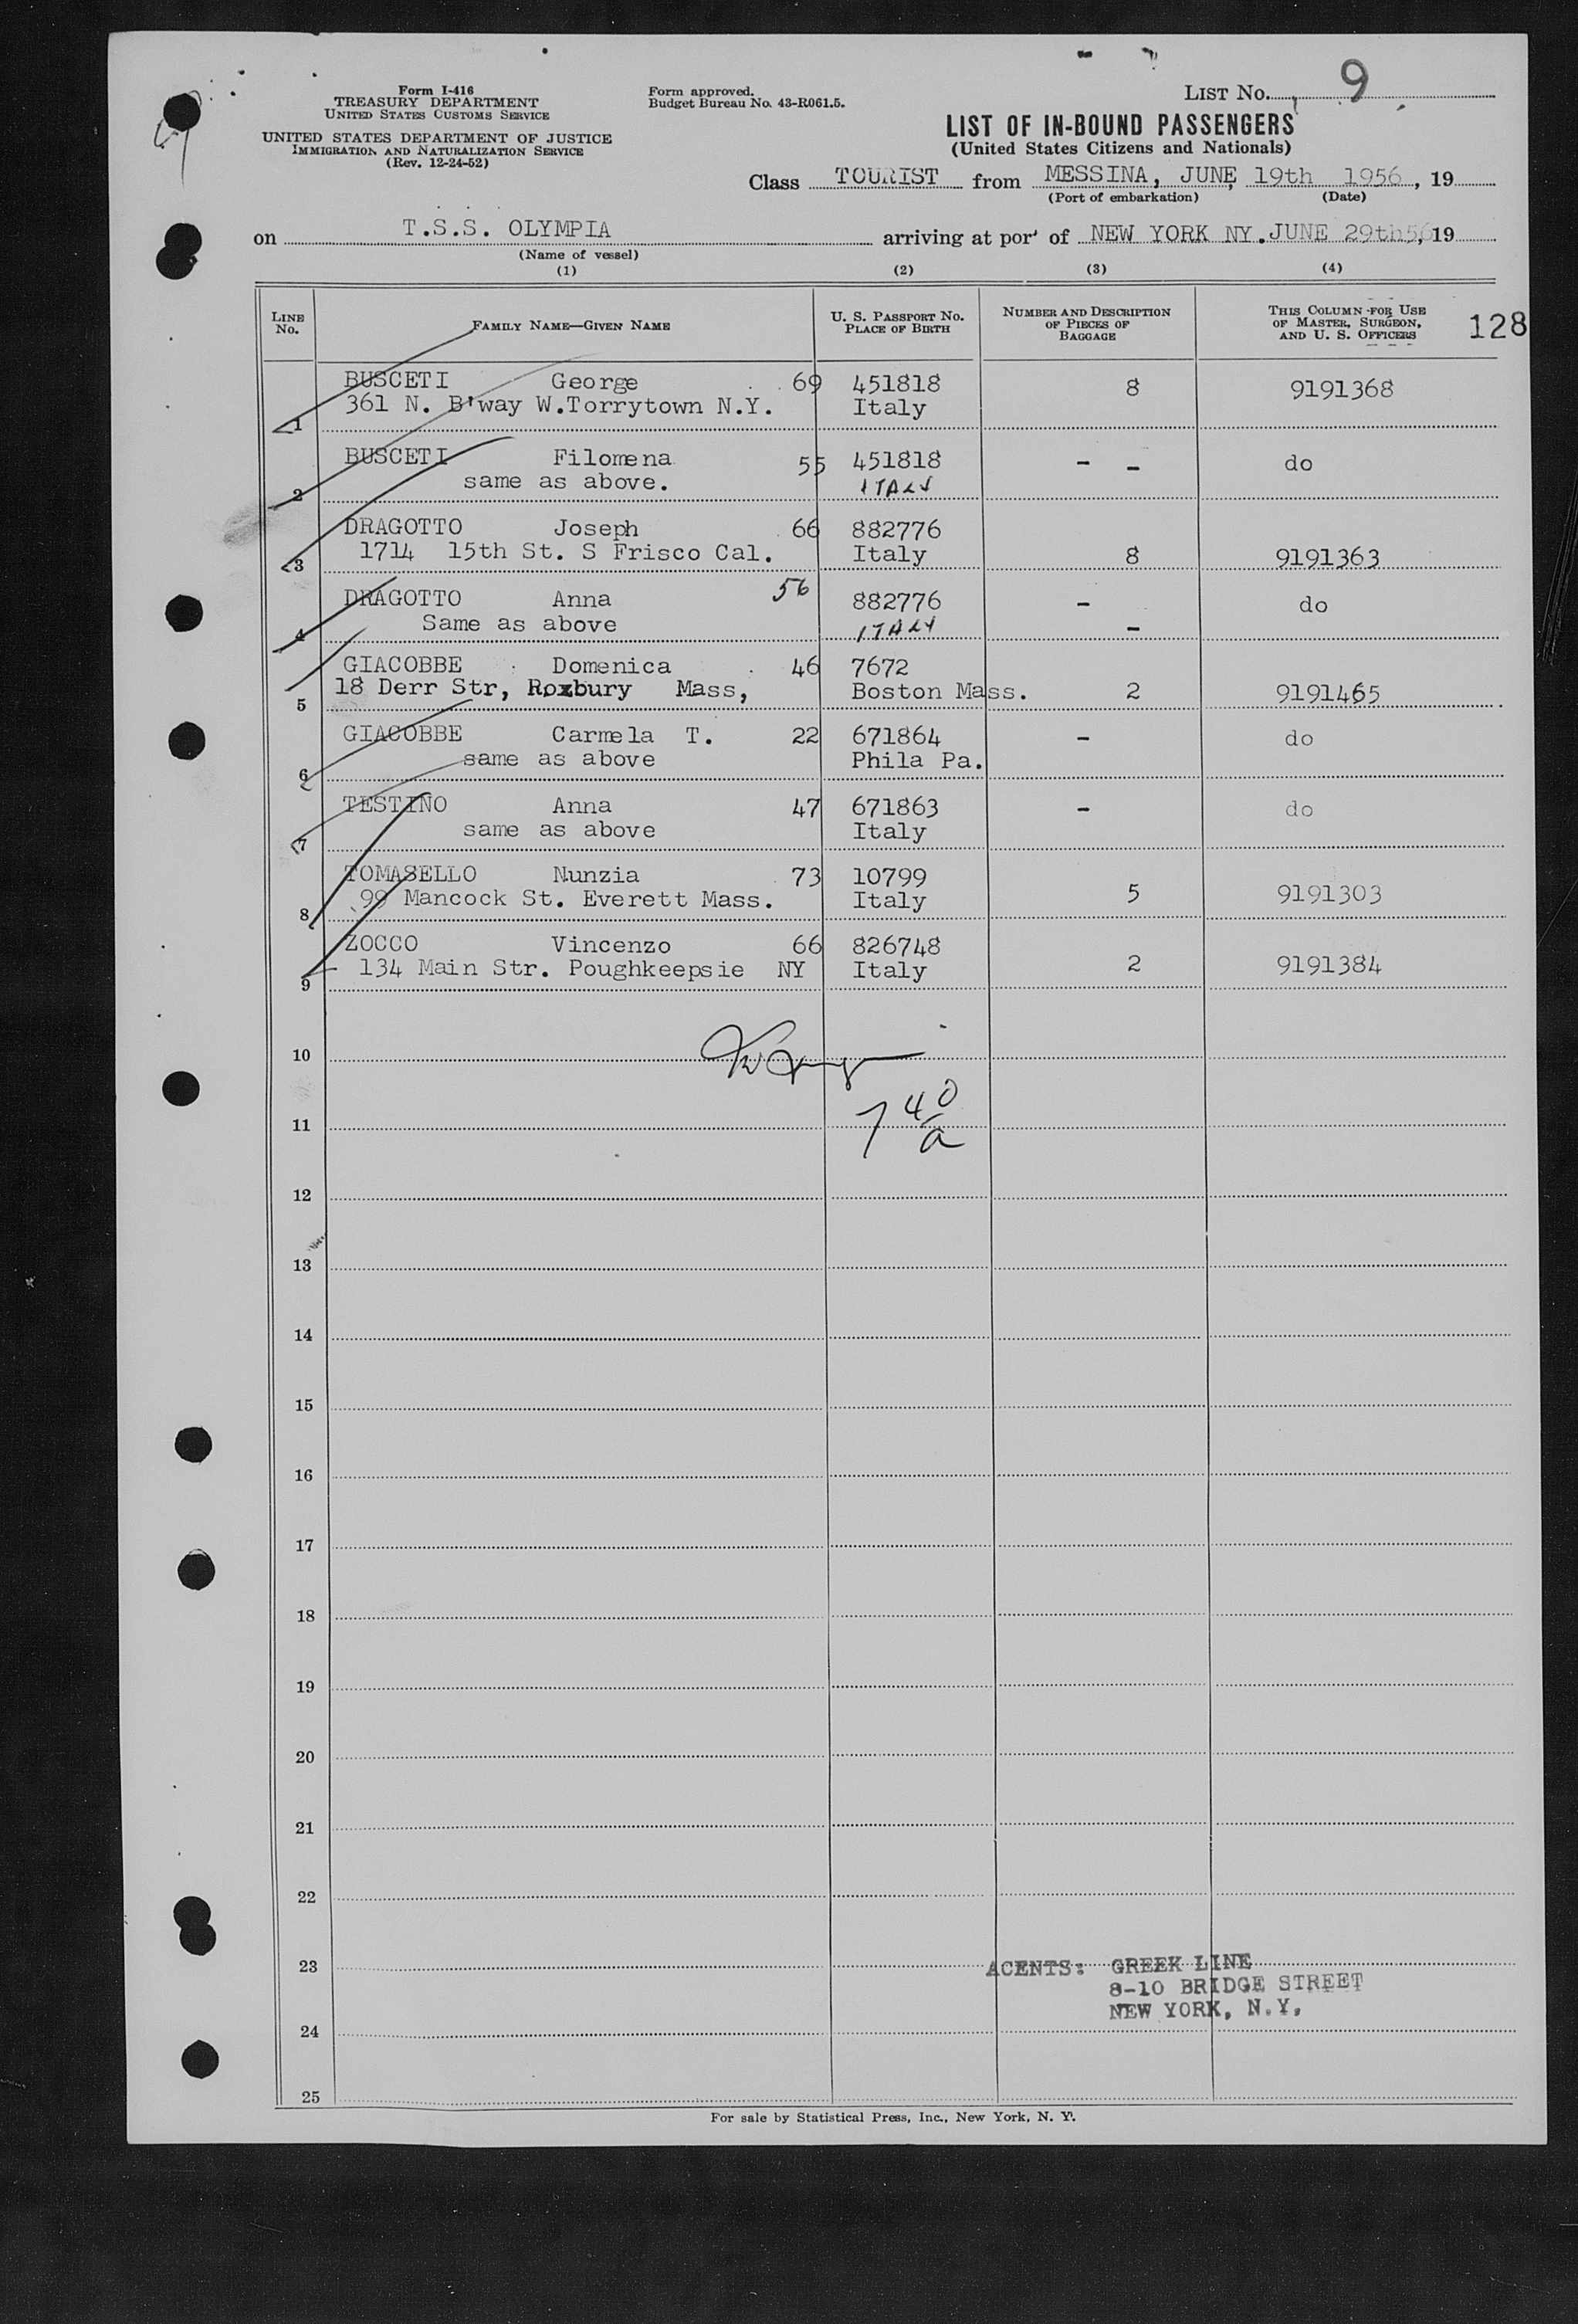 Form I-416
TREASURY DEPARTMENT
UNITED STATES CUSTOMS SERVICE
UNITED STATES DEPARTMENT OF JUSTICE
IMMIGRATION AND NATURALIZATION SERVICE
(Rev. 12-24-52)
Form approved.
Budget Bureau No. 43-R061.5.
LIST No. 9
LIST OF IN-BOUND PASSENGERS
(United States Citizens and Nationals)
Class TOURIST from MESSINA, JUNE 19th 1956, 19
(Port of embarkation) (Date)
on T.S.S. OLYMPIA arriving at port of NEW YORK NY. JUNE 29th56, 19
(Name of vessel)
(1) (2) (3) (4)
LINE No. FAMILY NAME—GIVEN NAME U. S. PASSPORT No. PLACE OF BIRTH NUMBER AND DESCRIPTION OF PIECES OF BAGGAGE THIS COLUMN FOR USE OF MASTER, SURGEON, AND U. S. OFFICERS 128
BUSCETI George 69 451818 8 9191368
1 361 N. B'way W.Torrytown N.Y. Italy
BUSCETI Filomena 55 451818 - - do
2 same as above. ITALY
DRAGOTTO Joseph 66 882776
3 1714 15th St. S Frisco Cal. Italy 8 9191363
DRAGOTTO Anna 56 882776 - do
4 Same as above ITALY -
GIACOBBE Domenica 46 7672
5 18 Derr Str, Roxbury Mass, Boston Mass. 2 9191465
GIACOBBE Carmela T. 22 671864 - do
6 same as above Phila Pa.
TESTINO Anna 47 671863 - do
7 same as above Italy
TOMASELLO Nunzia 73 10799
8 99 Mancock St. Everett Mass. Italy 5 9191303
ZOCCO Vincenzo 66 826748
9 134 Main Str. Poughkeepsie NY Italy 2 9191384
10
11 7 40/a
12
13
14
15
16
17
18
19
20
21
22
23 ACENTS: GREEK LINE
8-10 BRIDGE STREET
NEW YORK, N.Y.
24
25
For sale by Statistical Press, Inc., New York, N. Y.